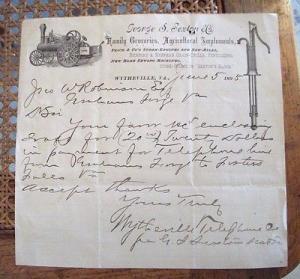 George S. Sexton & Co.
Family Groceries, Agricultural Implements,
New Home Sewing Machines,
Wytheville, Va., June 5 1895
Jno W Robinson Esq
Grahams Forge Va
D Sir
Your favor rec enclosing
draft for 20.00 Twenty Dollars
in payment for Telephone line
from Grahams Forge to Fosters
Falls Va
Accept thanks
Yours Truly
Wytheville Telephone Co
per G S